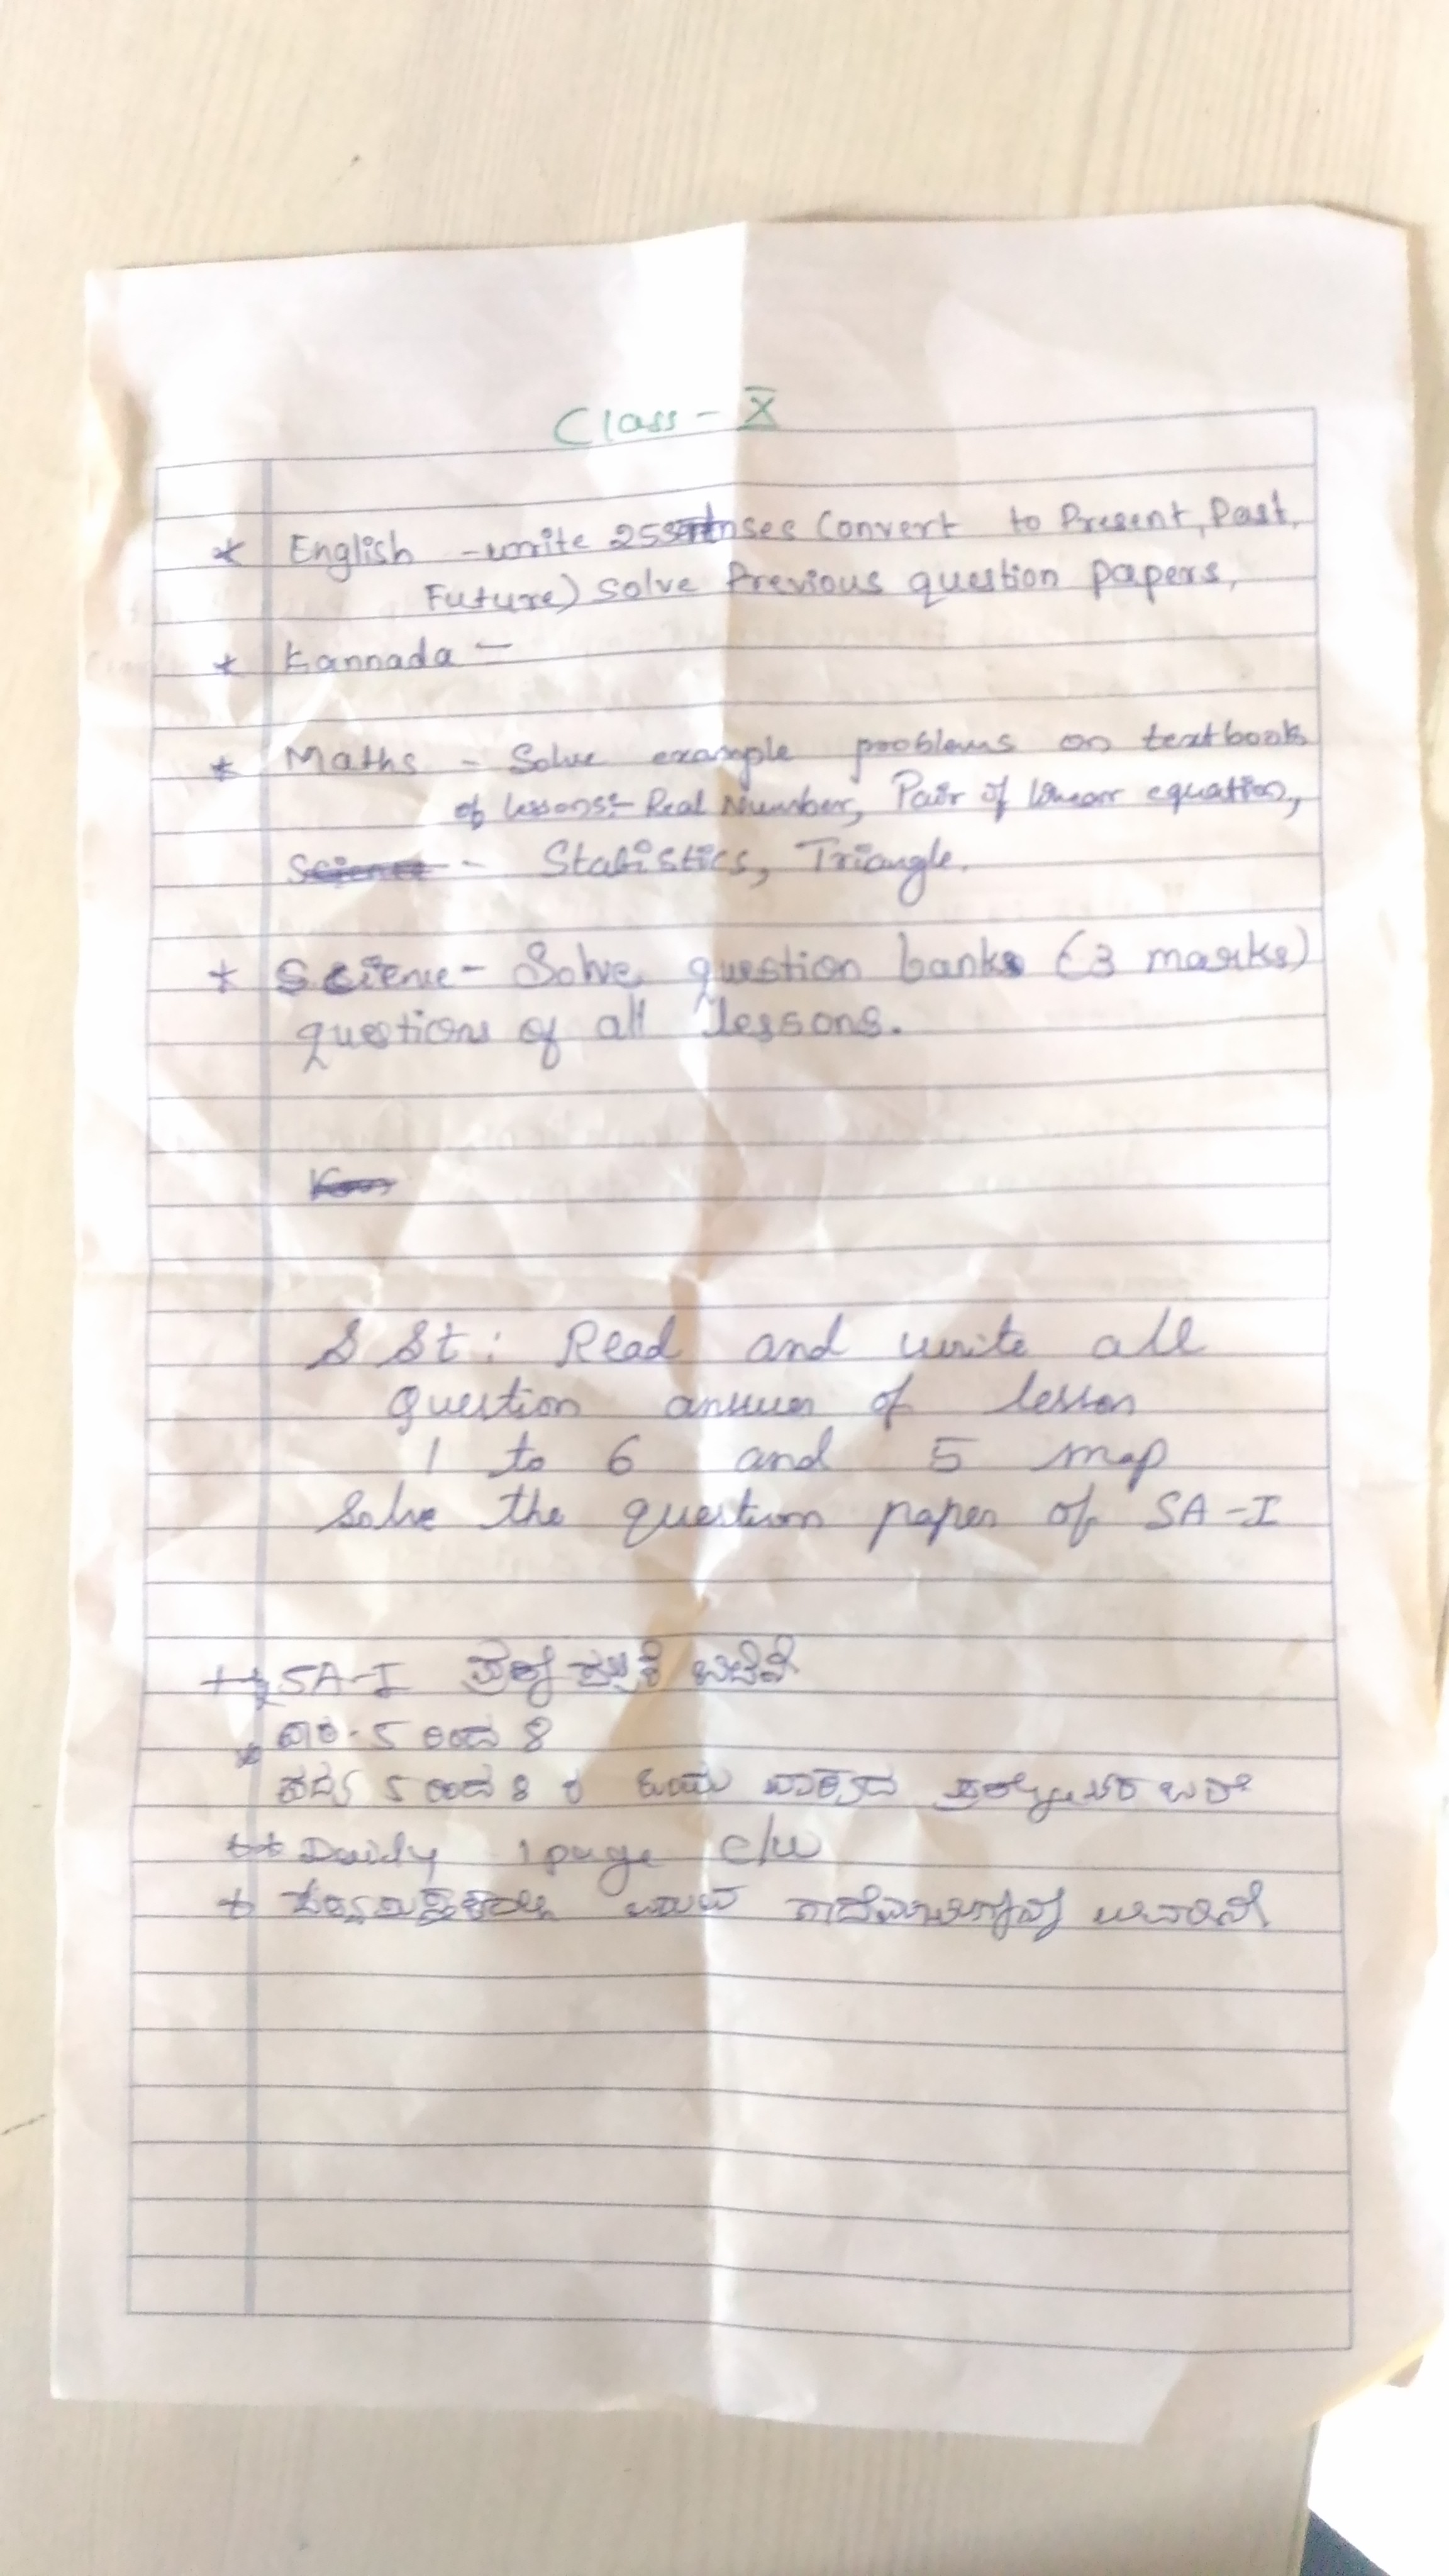 Class - X
* English - write 25 Convert to Present, Past,
Future) Solve Previous question papers,
* Kannada -
* Maths - Solve example problems on textbook
of lessons:- Real Number, Pair of linear equation,
Science - Statistics, Triangle.
* Science - Solve question banks (3 marks)
questions of all lessons.
S St : Read and write all
question answer of lesson
1 to 6 and 5 map
Solve the question paper of SA-I
SA-I ಪ್ರಶ್ನೆ ಪತ್ರಿಕೆ ಬಿಡಿಸಿ
ಪಾಠ - 5 ರಿಂದ 8
ಪದ್ಯ 5 ರಿಂದ 8 ರ ವಾಕ್ಯದ ಪ್ರಶ್ನೋತ್ತರ ಬರೆ
** Daily 1 page c/w
*